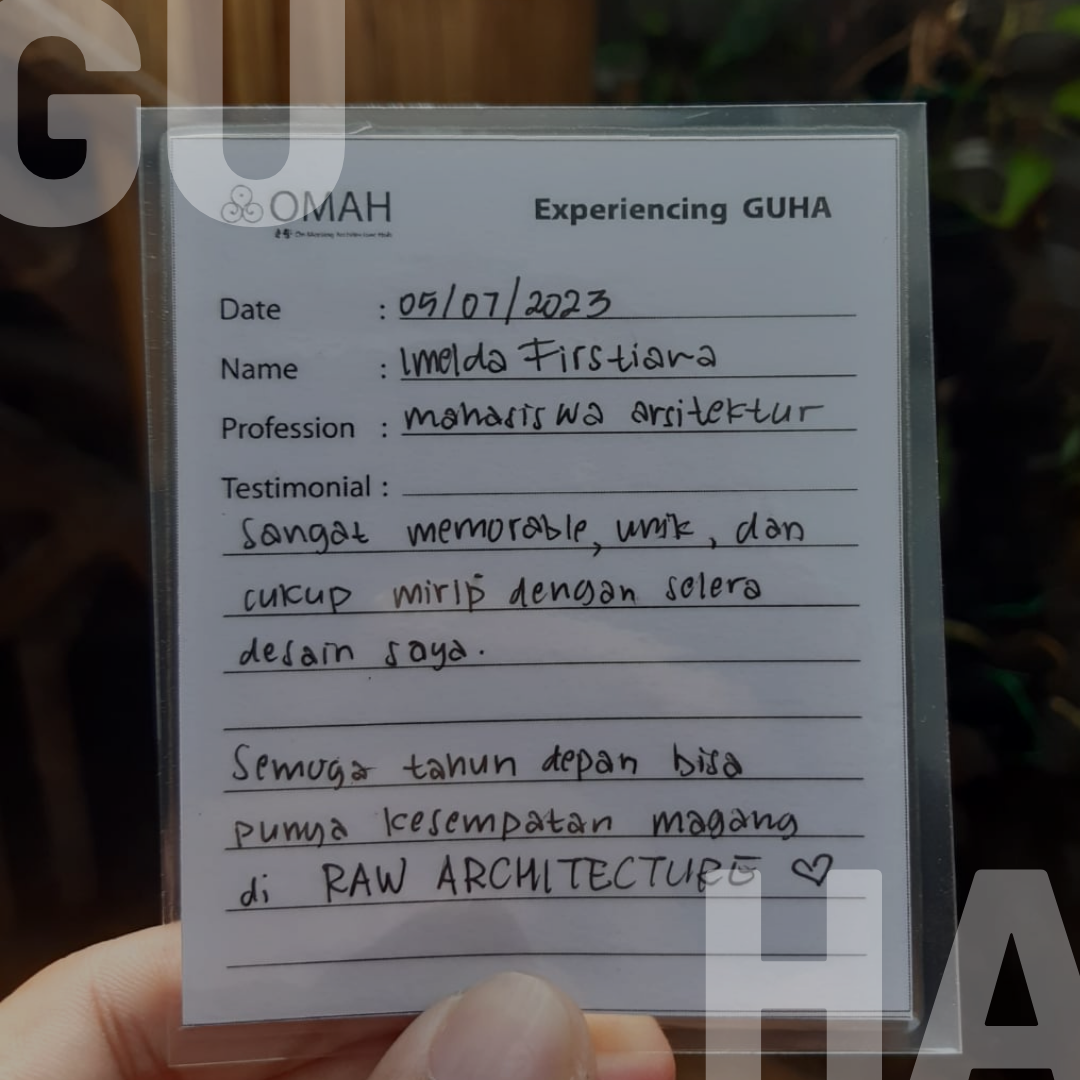 GU
OMAH
Experiencing GUHA
Date : 05/07/2023
Name : Imelda Firstiara
Profession : mahasiswa arsitektur
Testimonial :
Sangat memorable, unik, dan
cukup mirip dengan selera
desain saya.
Semoga tahun depan bisa
punya kesempatan magang
di RAW ARCHITECTURE ♡
HA